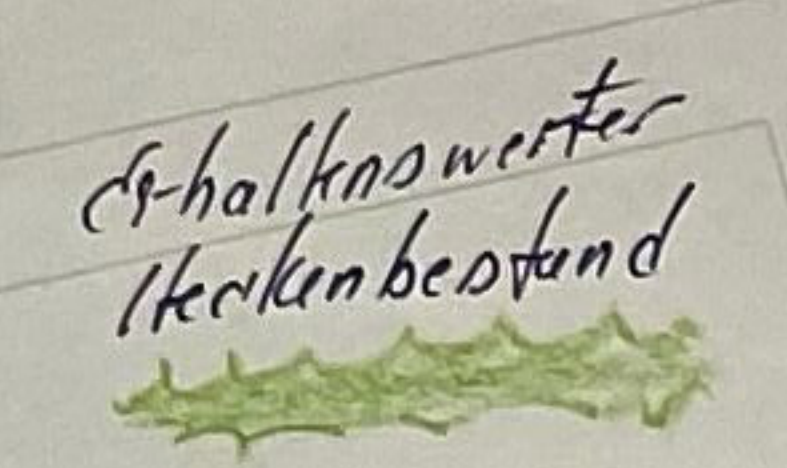 Erhaltenswerter
Heckenbestand